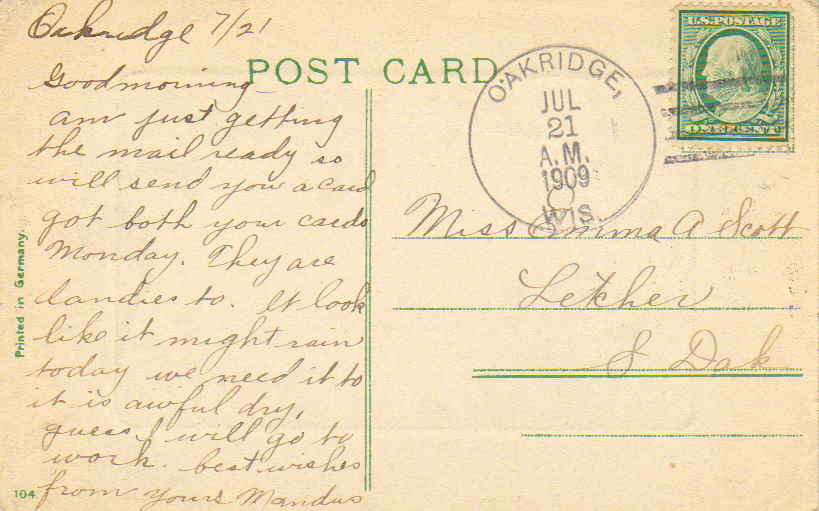 Oakridge 7/21
Goodmorning
am just getting
the mail ready so
will send you a card
got both your cards
Monday. They are
dandies to. It look
like it might rain
today we need it to
it is awful dry,
guess I will go to
work. best wishes
from yours Mandus
POST CARD.
OAKRIDGE,
JUL
21
A.M.
1909
WIS.
U.S. POSTAGE
ONE CENT
Miss Emma A Scott
Letcher
S Dak
Printed in Germany.
104.